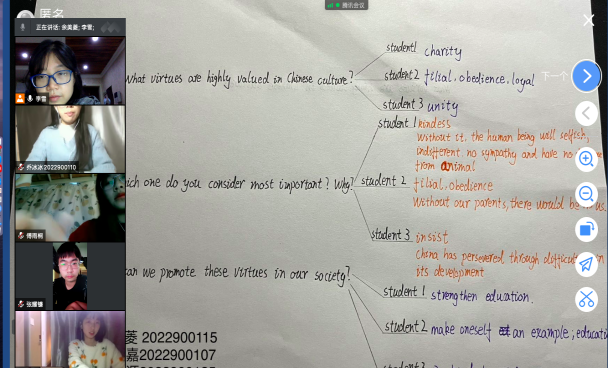 匿名
腾讯会议
正在讲话: 余美菱; 李雪;
李雪
乔冰冰2022900110
傅雨桐
下一个
What virtues are highly valued in Chinese culture?
student1 charity
student2 filial. obedience. loyal
student 3 unity
ich one do you consider most important? Why?
student 1 kindess
without it. the human being will selfish,
indifferent. no sympathy and have no
from animal
student 2 filial. obedience
without our parents, there would be us.
student 3 insist
China has persevered through difficult in
its development
can we promote these virtues in our society?
student 1 strengthen education.
student 2 make oneself an example; educati
菱 2022900115
嘉2022900107